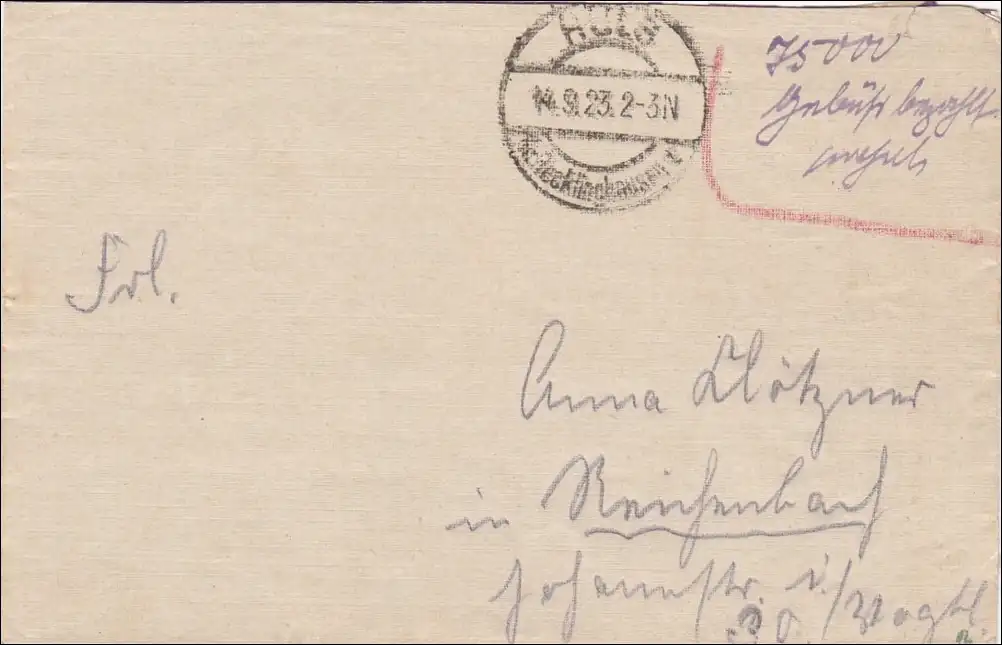 HÜLS
14.9.23.2-3N
(Kr. Recklinghausen)
75000
Gebühr bezahlt.
Frl.
Anna Klötzner
in Reichenbach
Johannstr. i./Vogtl.
30.